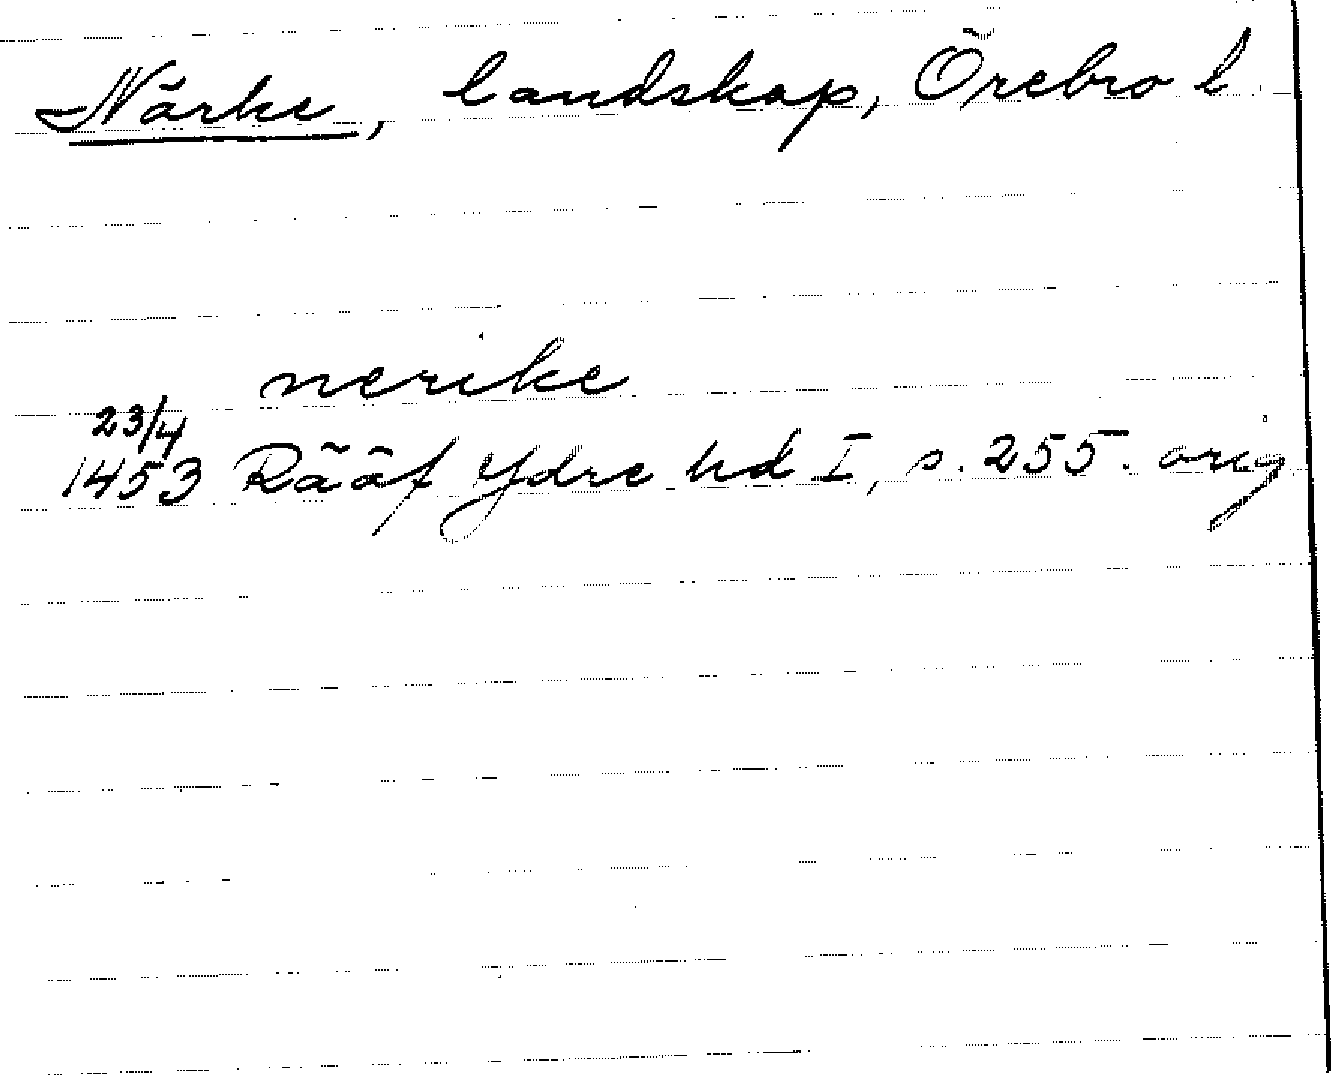 Närke, landskap, Örebro l
nerike
23/4
1453 Rääf Ydre hd I, s. 255. orig